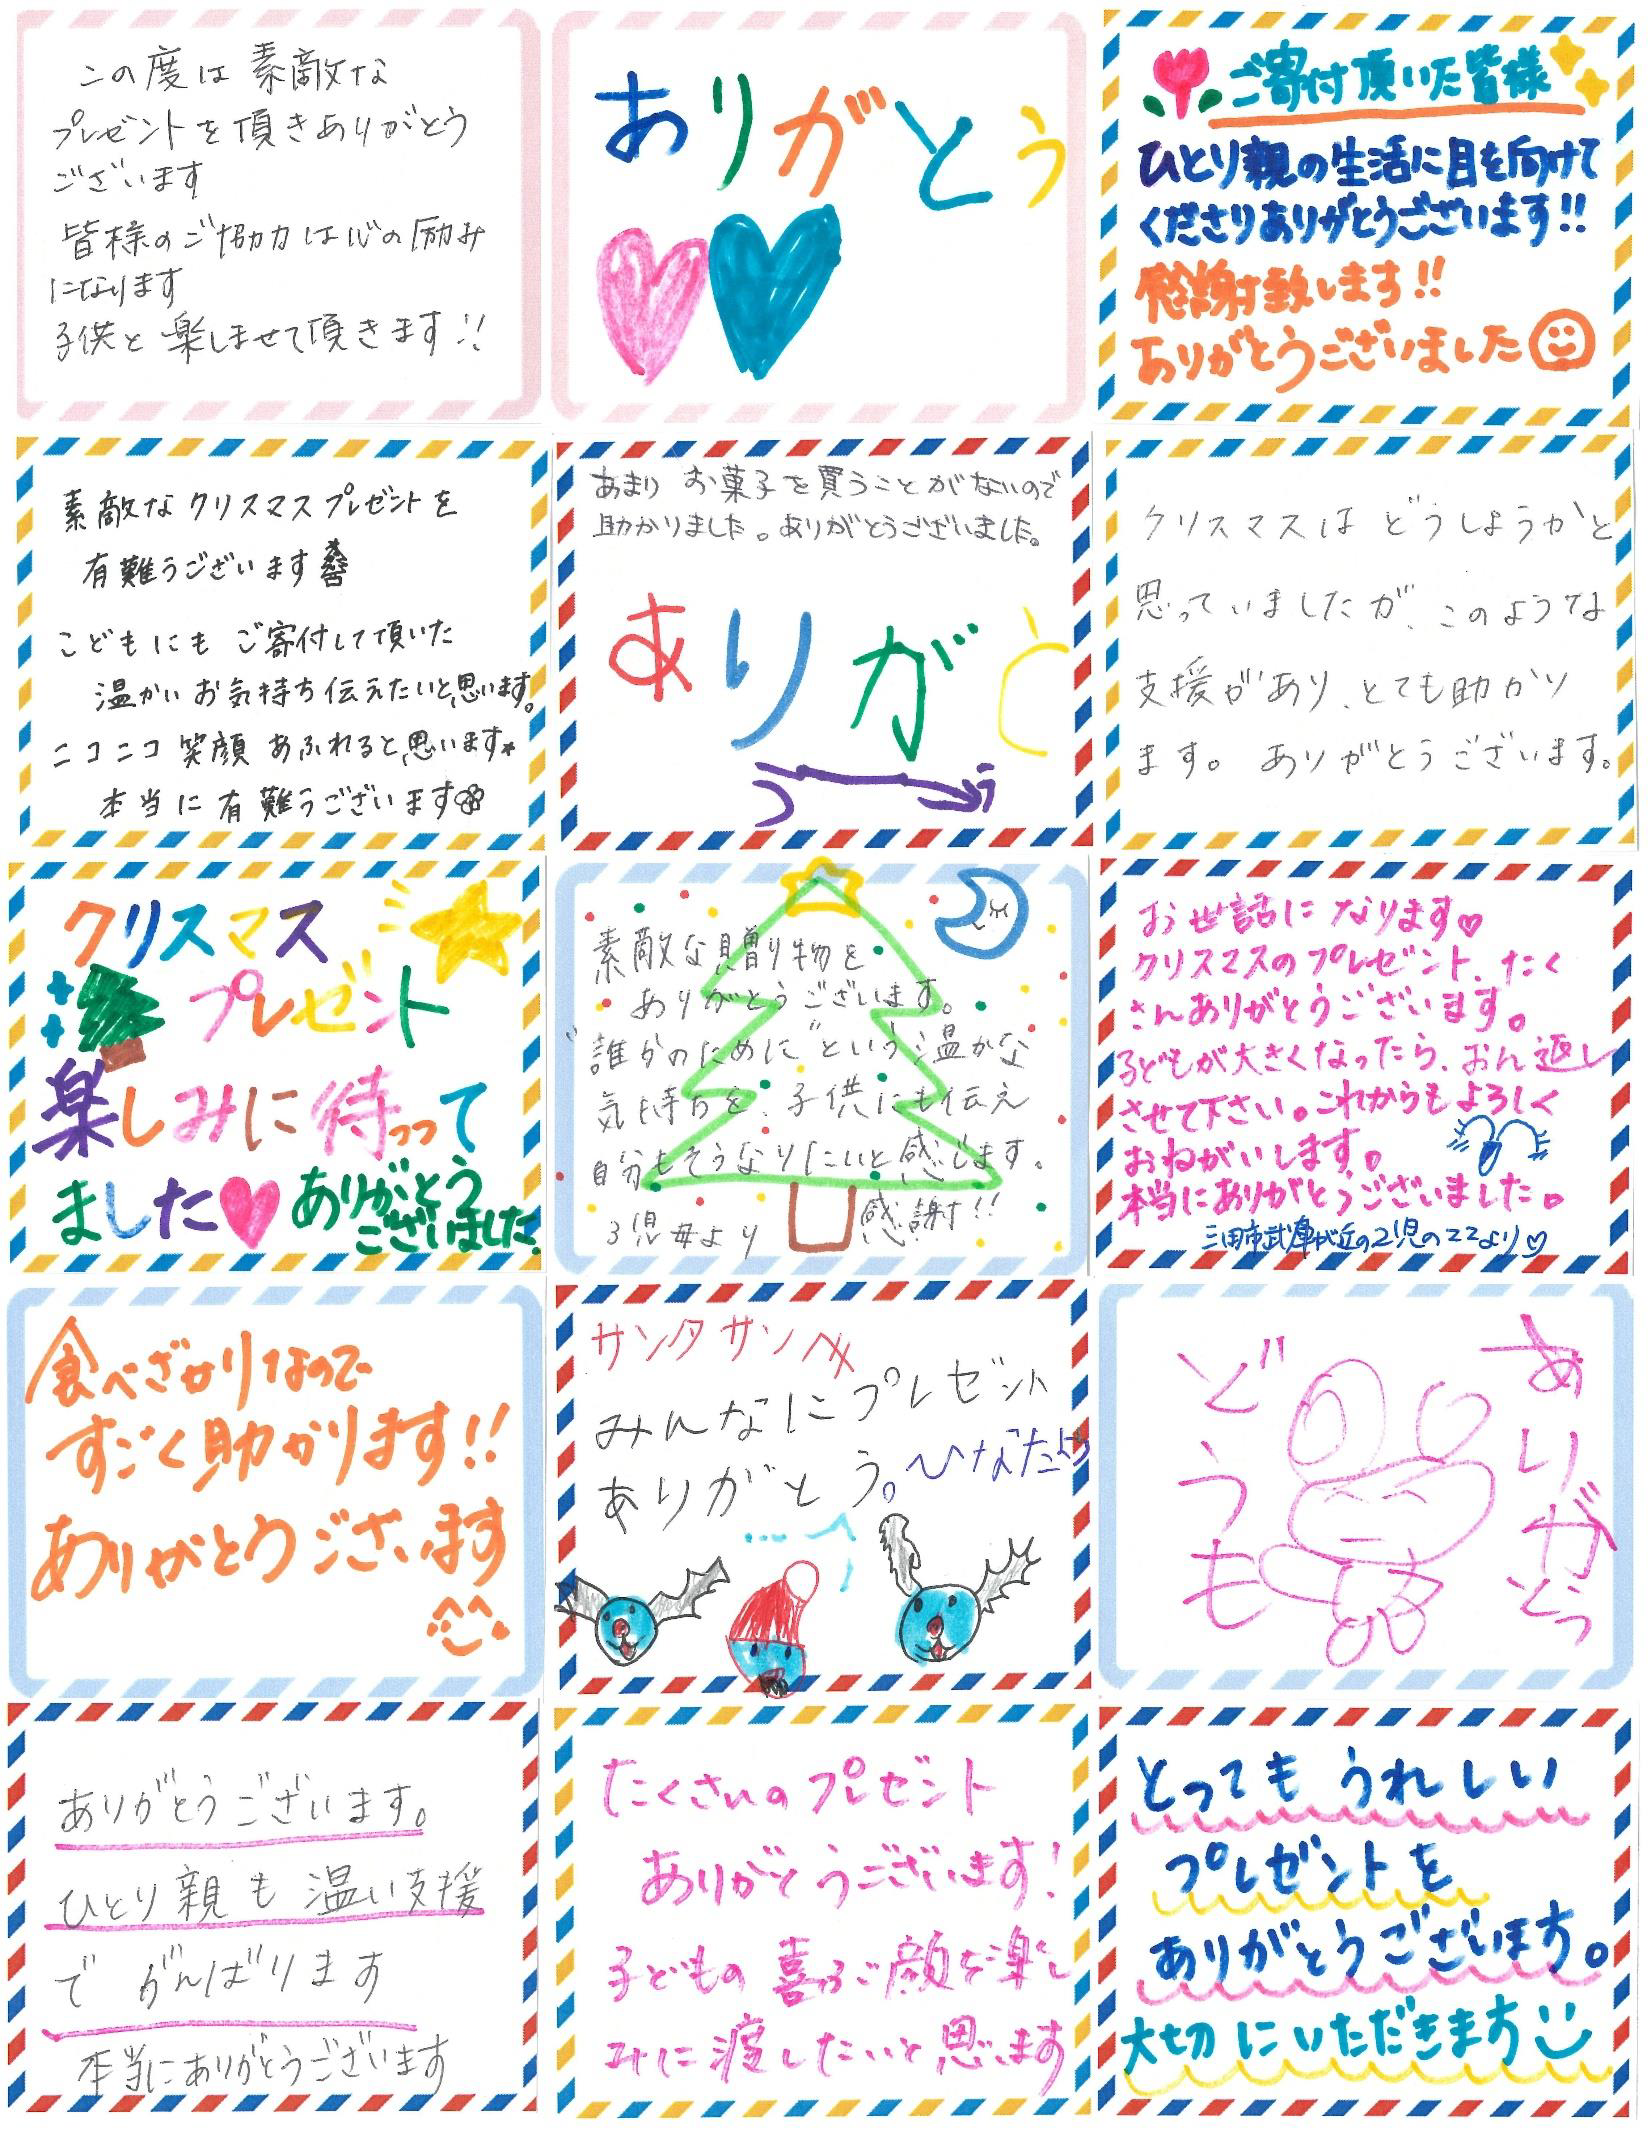 この度は素敵な
プレゼントを頂きありがとう
ございます
皆様のご協力は心の励み
になります
子供と楽しませて頂きます!!
ありがとう
ご寄付頂いた皆様
ひとり親の生活に目を向けて
くださりありがとうございます!!
感謝致します!!
ありがとうございました
素敵なクリスマスプレゼントを
有難うございます
こどもにもご寄付して頂いた
温かいお気持ち伝えたいと思います。
ニコニコ笑顔あふれると思います
本当に有難うございます
あまりお菓子を買うことがないので
助かりました。ありがとうございました。
ありが
クリスマスはどうしようかと
思っていましたが、このような
支援があり、とても助かり
ます。ありがとうございます。
クリスマス
プレゼント
楽しみに待って
ました♥ありがとう
ございました
素敵な贈り物を
ありがとうございます。
"誰かのために"という温かな
気持ちを、子供にも伝え
自分もそうなりたいと感じます。
3児母より 感謝!!
お世話になります♡
クリスマスのプレゼント、たく
さんありがとうございます。
子どもが大きくなったら、おん返し
させて下さい。これからもよろしく
おねがいします。
本当にありがとうございました。
三田市武庫が丘の2児のママより♡
食べざかりなので
すごく助かります!!
ありがとうございます
サンタサンへ
みんなにプレゼント
ありがとう。ひなたより
ありがとう
どうも
ありがとうございます。
ひとり親も温い支援
でがんばります
本当にありがとうございます
たくさんのプレゼント
ありがとうございます!
子どもの喜ぶ顔を楽し
みに渡したいと思います
とってもうれしい
プレゼントを
ありがとうございます。
大切にいただきます